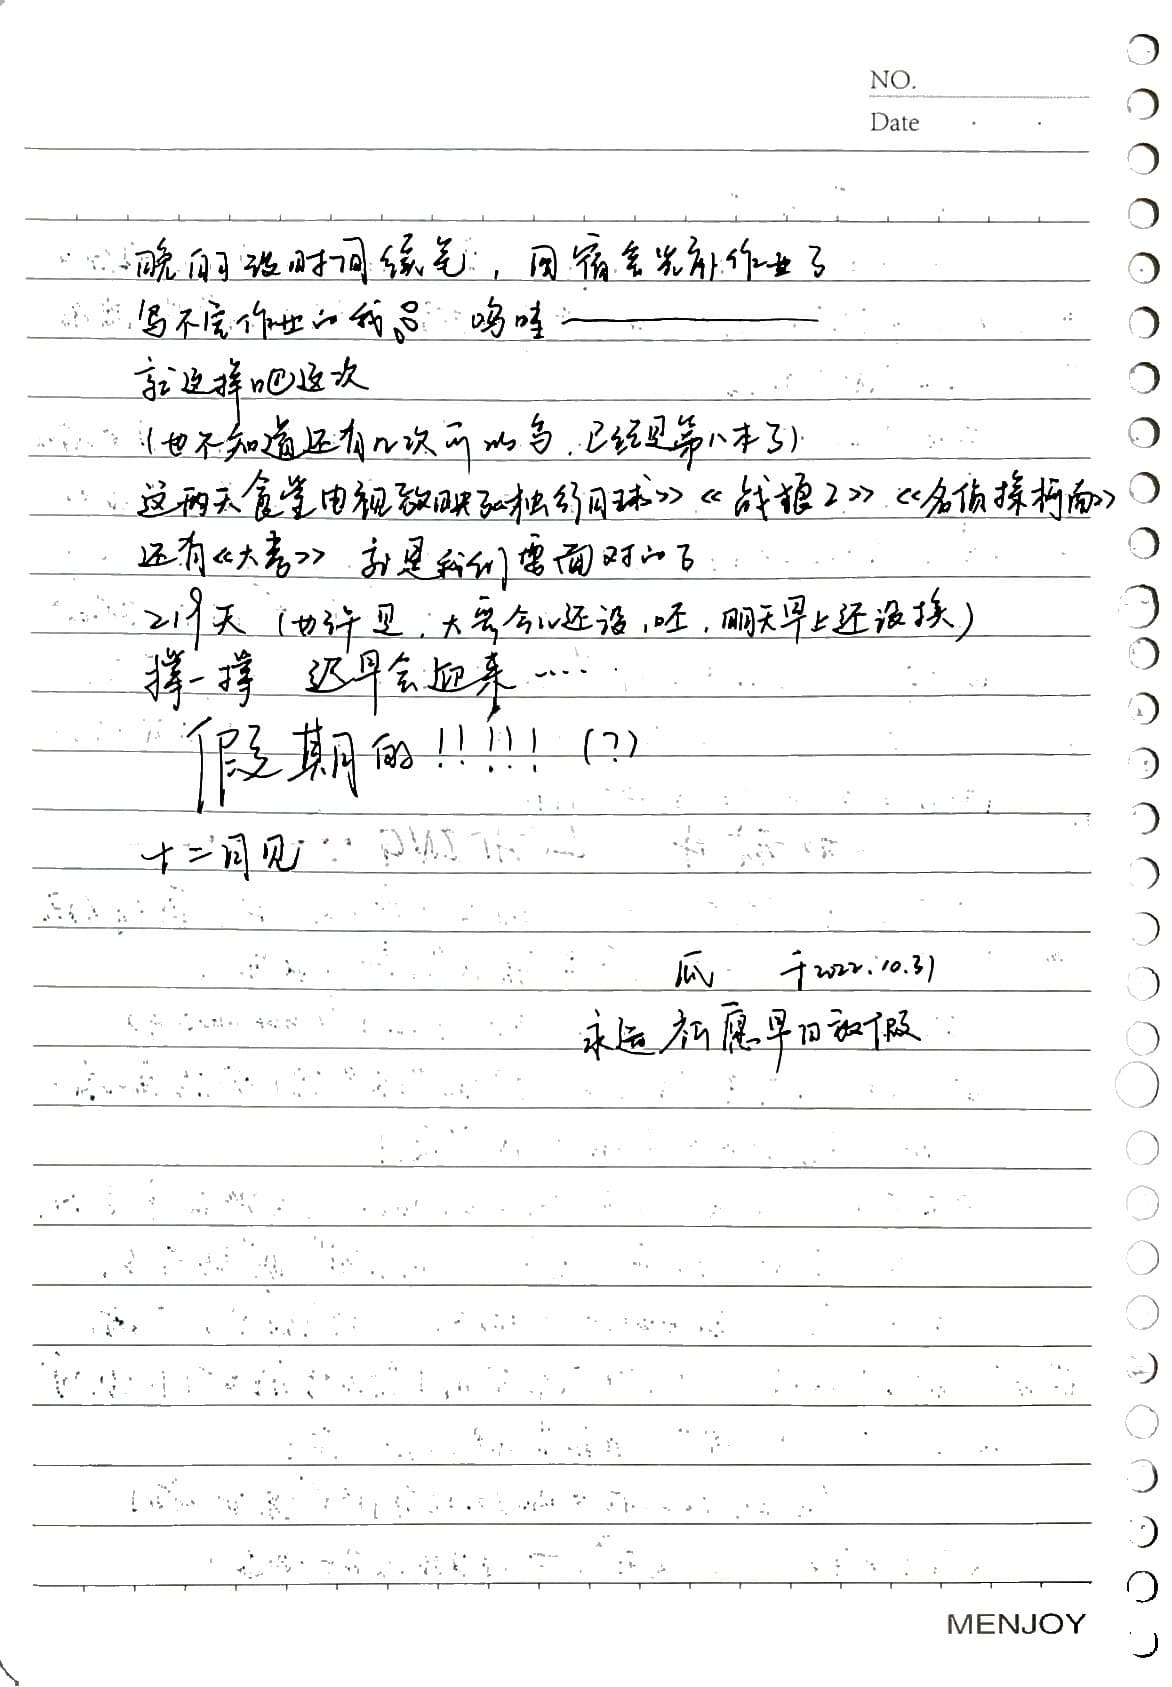 NO.
Date
晚自习没时间续笔，回宿舍先补作业了
写不完作业的我 呜哇
就这样吧这次
(也不知道还有几次可以写，已经是第八本了)
这两天食堂电视放映《独行月球》《战狼2》《名侦探柯南》
还有《大考》 就是我们要面对的了
219天 (也许是，大会会儿还没，呸，明天早上还没挨)
撑一撑 迟早会迎来……
假期的!!!!! (?)
十二月见
瓜 于2022.10.31
永远祈愿早日放假
MENJOY